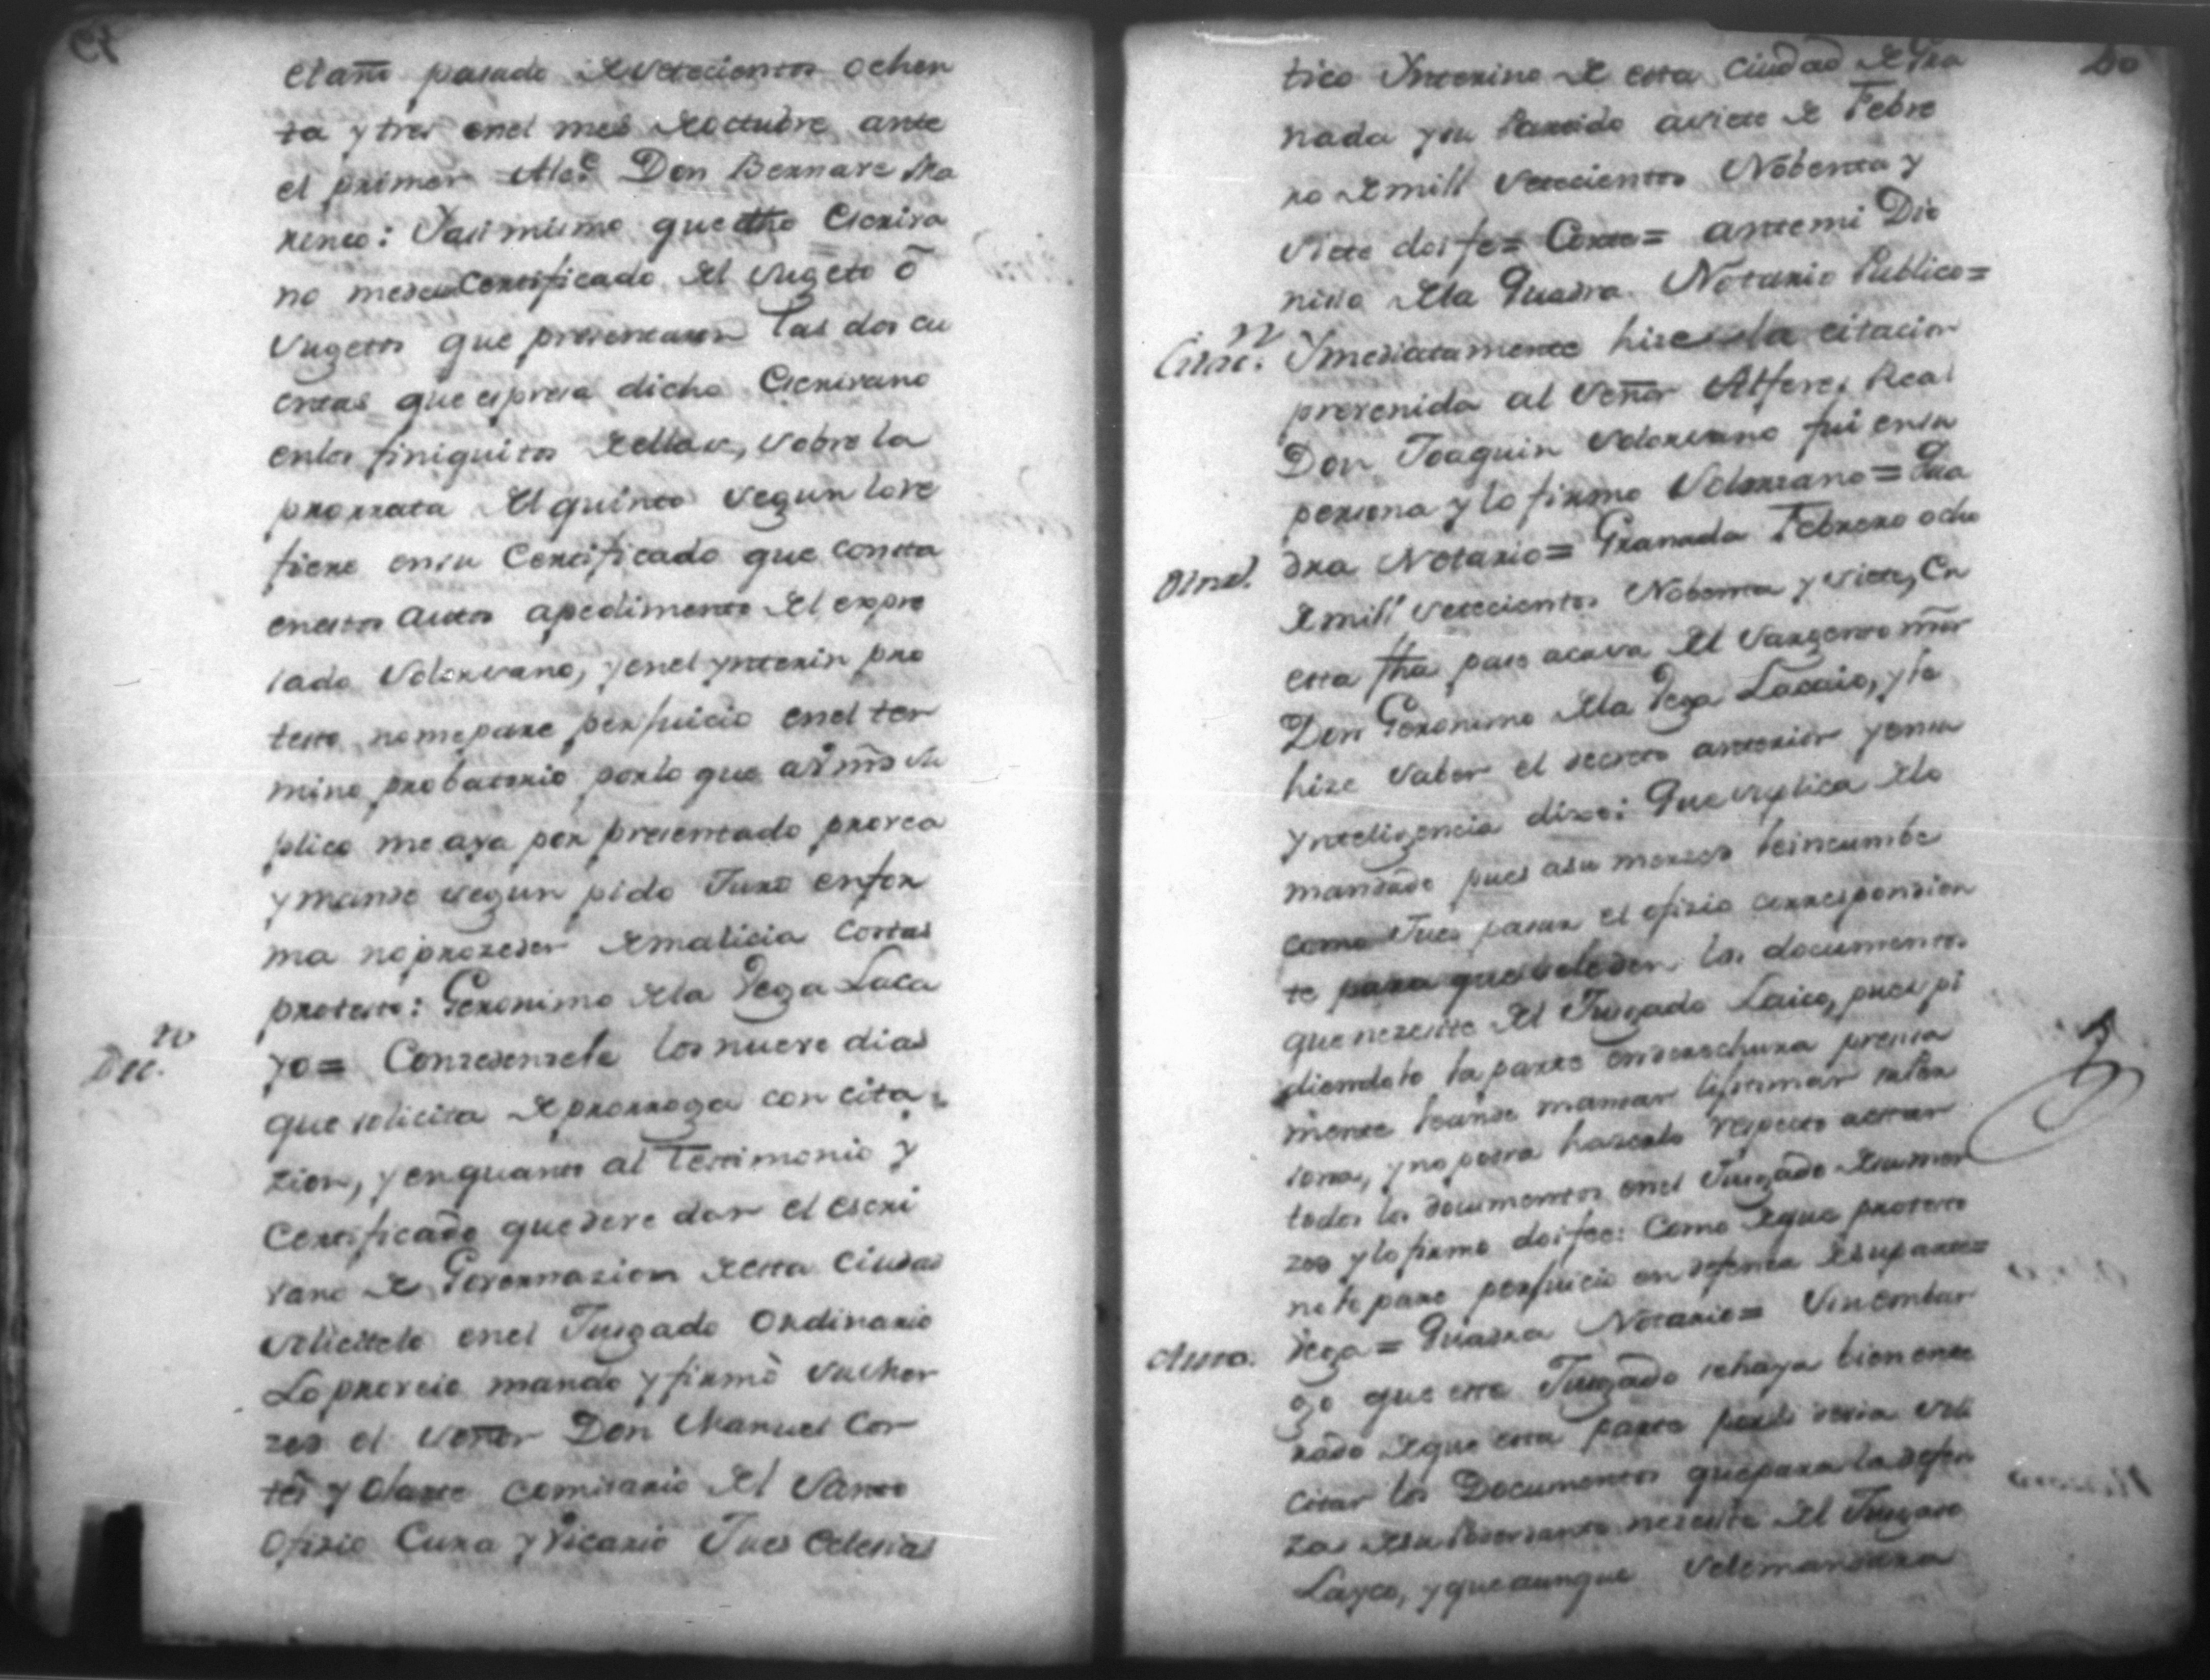 el año pasado de setecientos ochen
ta y tres en el mes de octubre ante
el primer Alc.e Don Bernave Mo
renco: Y asi mismo que dho Escriva
no me de Certificado del sugeto ó
sugetos que presentaron las dos cu
entas que espresa dicho Escrivano
en los finiquitos de ellas, sobre la
prorrata del quinto segun lo re
fiere en su Certificado que consta
en estos autos a pedimento del expre
sado Solorsano, y en el ynterin pro
testo no me pare perjuicio en el ter
mino probatorio por lo que
plico me aya por presentado provea
y mande segun pido Juro en for
ma no prozeder de malicia Costas
protesto: Geronimo de la Vega Laca
Dec.to
yo= Conzedensele los nueve dias
que solicita de prorroga con cita
zion, y en quanto al testimonio y
Certificado que deve dar el escri
vano de Governazion de esta Ciudad
solicitelo en el Juzgado Ordinario
Lo proveio mando y firmò su Mer
zed el señor Don Manuel Cor
tes y Olarte Comisario del Santo
Ofizio Cura y Vicario Jues Eclesias
tico Ynterino de esta Ciudad de Gra
nada y su Partido a siete de Febre
ro de mill setecientos Nobenta y
siete doi fe= Cortes= ante mi Dio
nisio de la Quadra Notario Publico=
Citac.n
Ymediatamente hise la citacion
prevenida al señor Alferes Real
Don Joaquin Solorsano fui en su
persona y lo firmo Solorzano= Qua
dra Notario= Granada Febrero ocho
de mill setecientos Nobenta y siete, En
esta fha pase a casa del Sargento mõr
Don Geronimo de la Vega Lacaio, y le
hize saber el decreto anterior y en su
ynteligencia dixo: Que suplica de lo
mandado pues a su merzed le incumbe
como Jues pasar el ofizio correspondien
te para que se le den los documentos
que nezesite del Juzgado Laico, pues pi
diendolo la parte en derechura presisa
mente
y no podra hazerlo respecto a estar
todos los documentos en el Juzgado de su mer
zed y lo firmo doi fee: Como de que protesto
no le pare perjuicio en defensa de su parte=
Auto.
Vega= Quadra Notario= Sin embar
go que este Juzgado se haya bien ente
rado de que esta parte soli
citar los Documentos que para la defen
nezesita del Juzgado
Layco, y que aunque se le mandara